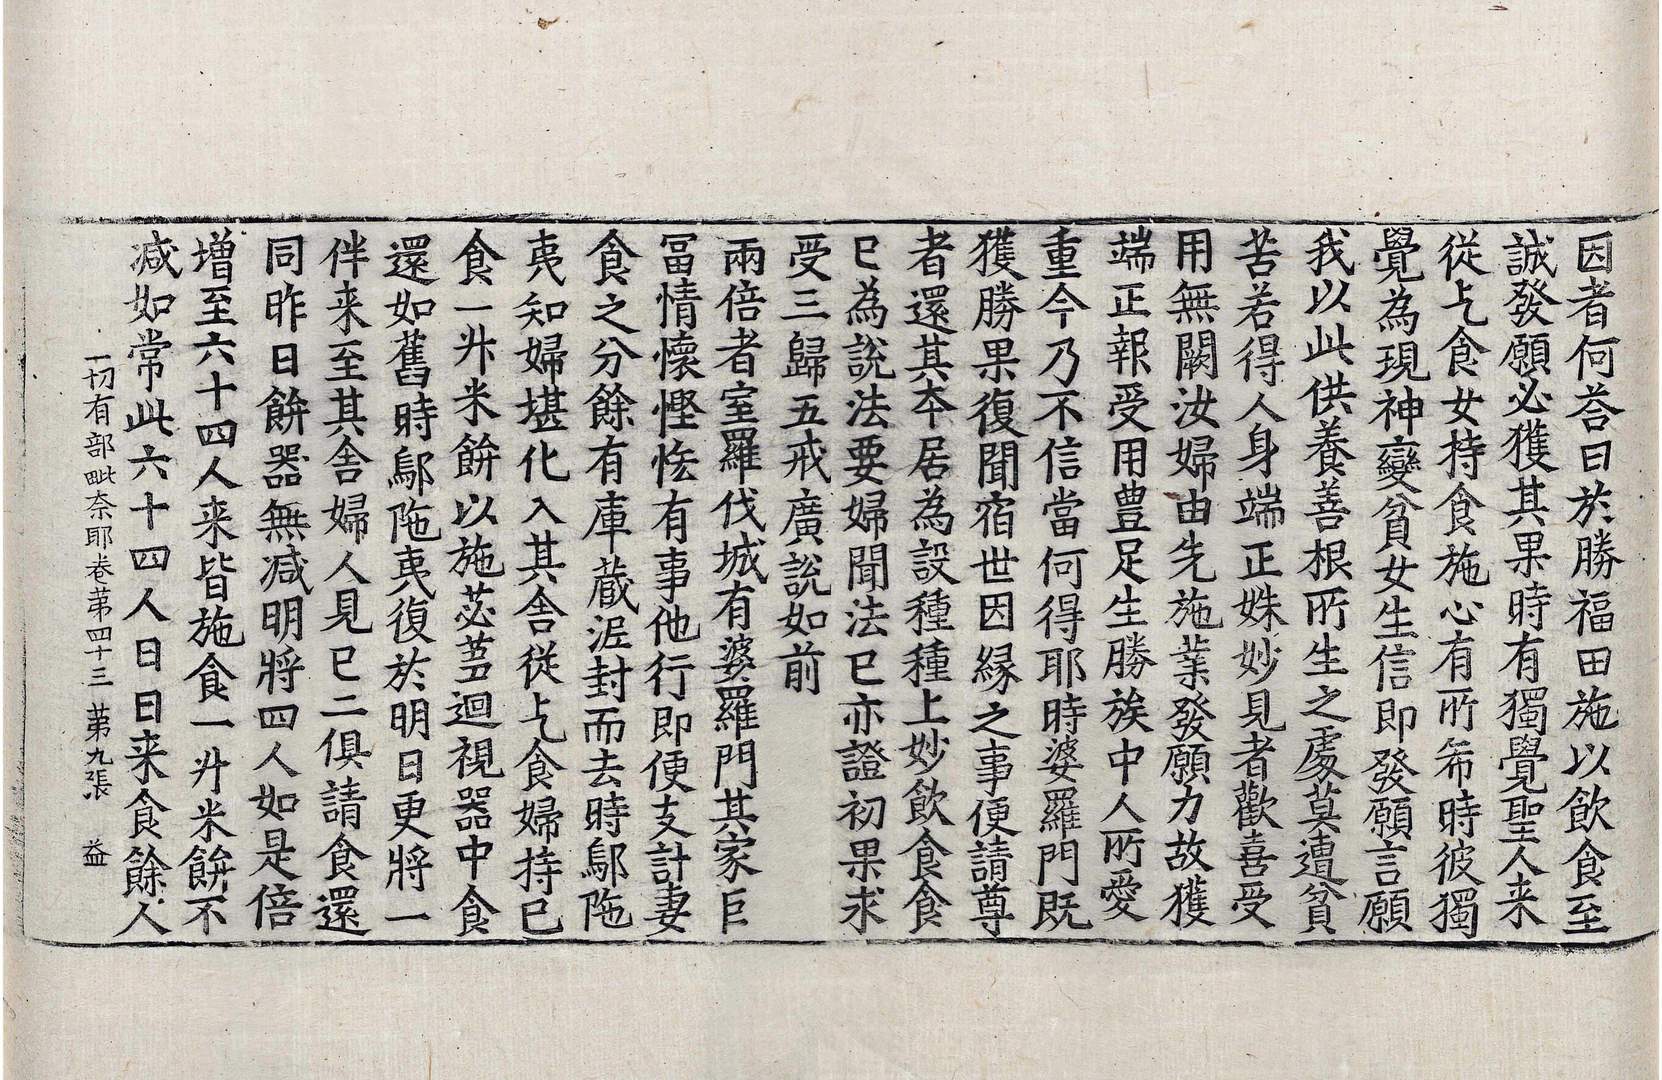 因者何荅曰於勝福田施以飲食至
誠發願必獲其果時有獨覺聖人来
從乞食女持食施心有所希時彼獨
覺為現神變貧女生信即發願言願
我以此供養善根所生之處莫遭貧
苦若得人身端正姝妙見者歡喜受
用無闕汝婦由先施業發願力故獲
端正報受用豊足生勝族中人所愛
重今乃不信當何得耶時婆羅門既
獲勝果復聞宿世因縁之事便請尊
者還其夲居為設種種上妙飲食食
已為說法要婦聞法已亦證初果求
受三歸五戒廣說如前
兩倍者室羅伐城有婆羅門其家巨
冨情懷慳悋有事他行即便支計妻
食之分餘有庫蔵泥封而去時鄔陁
夷知婦堪化入其舍從乞食婦持已
食一升米餅以施苾芻迴視器中食
還如舊時鄔陁夷復於明日更將一
伴来至其舍婦人見已二俱請食還
同昨日餅器無减明將四人如是倍
增至六十四人来皆施食一升米餅不
减如常此六十四人日日来食餘人
一切有部毗奈耶卷苐四十三 苐九張 益